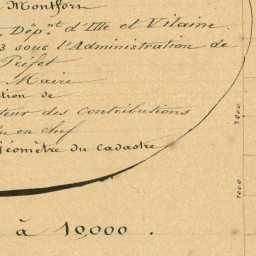 Montfort
Dépnt d'Ille et Vilaine
3 sous l'Administration de
Préfet
Maire
tion de
teur des contributions
en chef
Géomètre du cadastre
à 10,000.